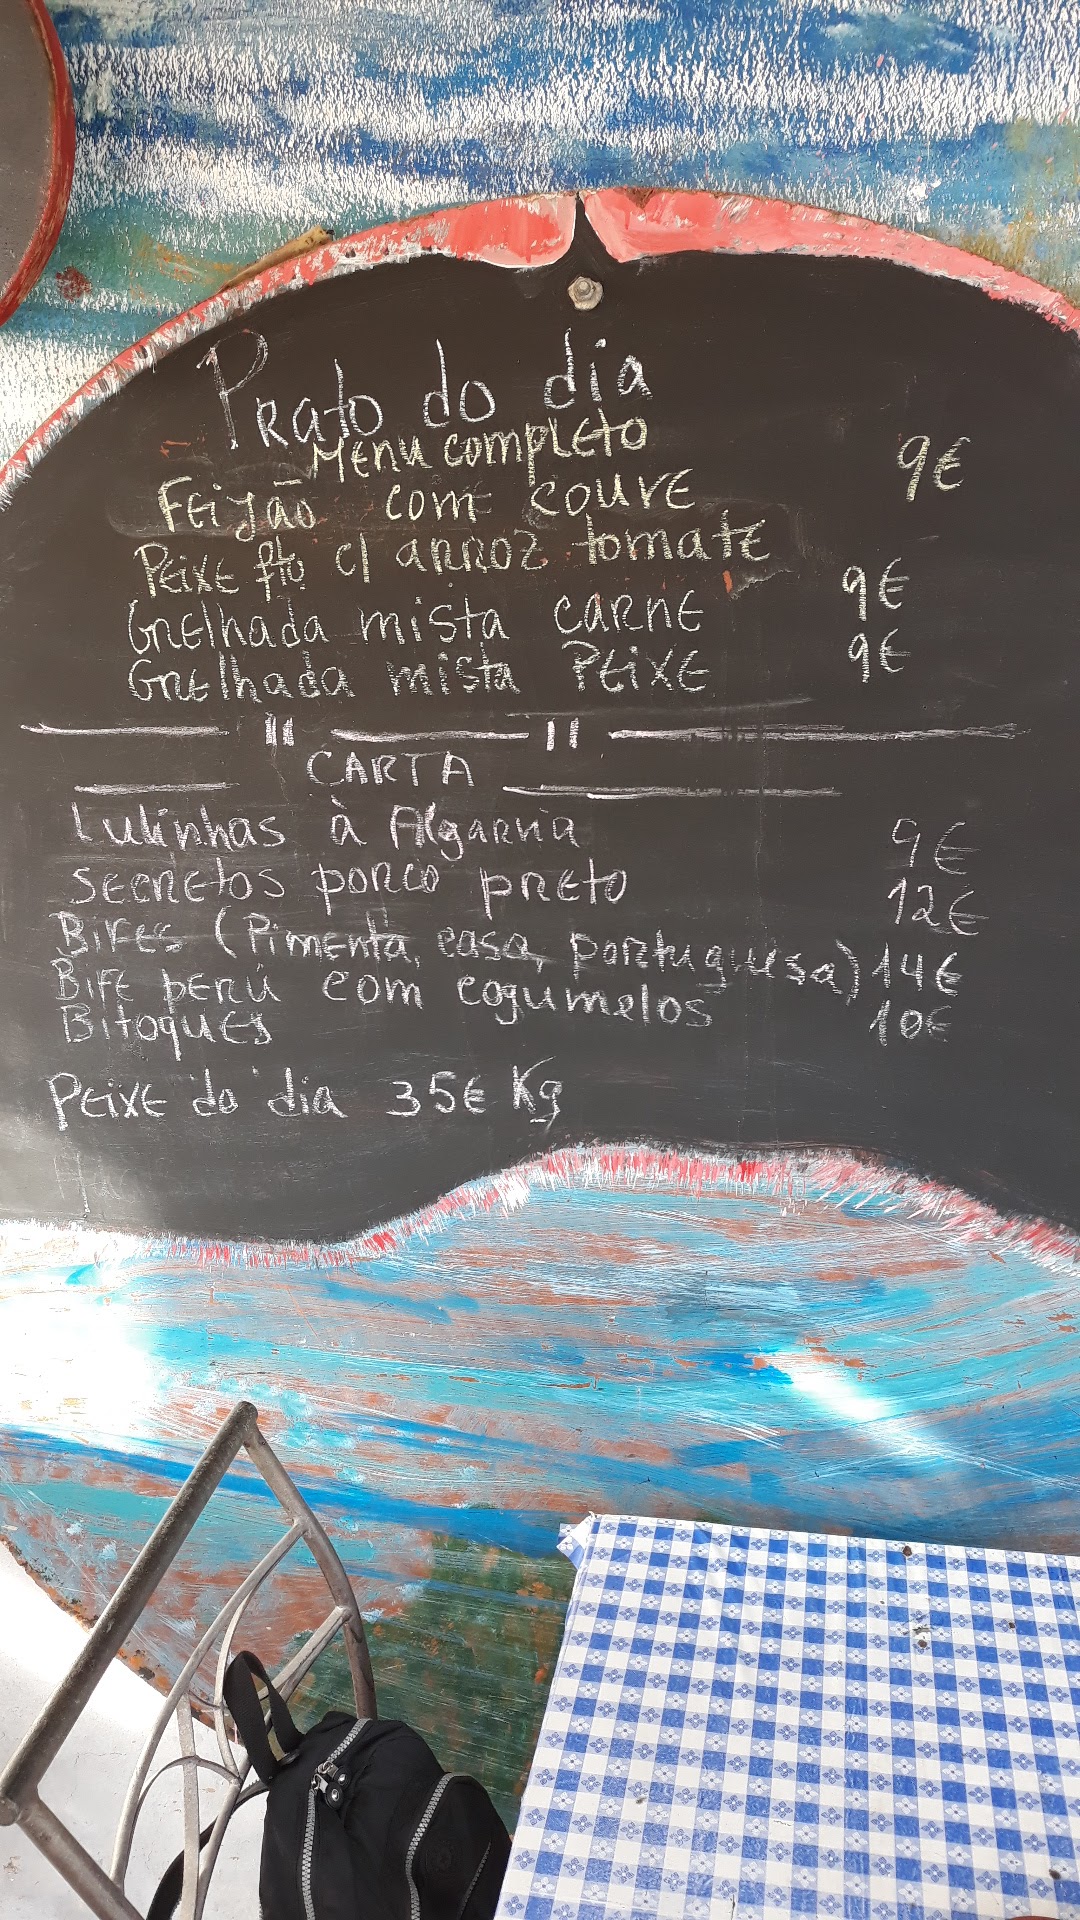 Prato do dia
Menu completo 9€
Feijão com couve
Peixe fto c/ arroz tomate
Grelhada mista carne 9€
Grelhada mista Peixe 9€
" "
CARTA
Lulinhas à Algarvia 9€
Secretos porco preto 12€
Bifes (Pimenta, casa, portuguesa) 14€
Bife perú com cogumelos 10€
Bitoques
Peixe do dia 35€ Kg